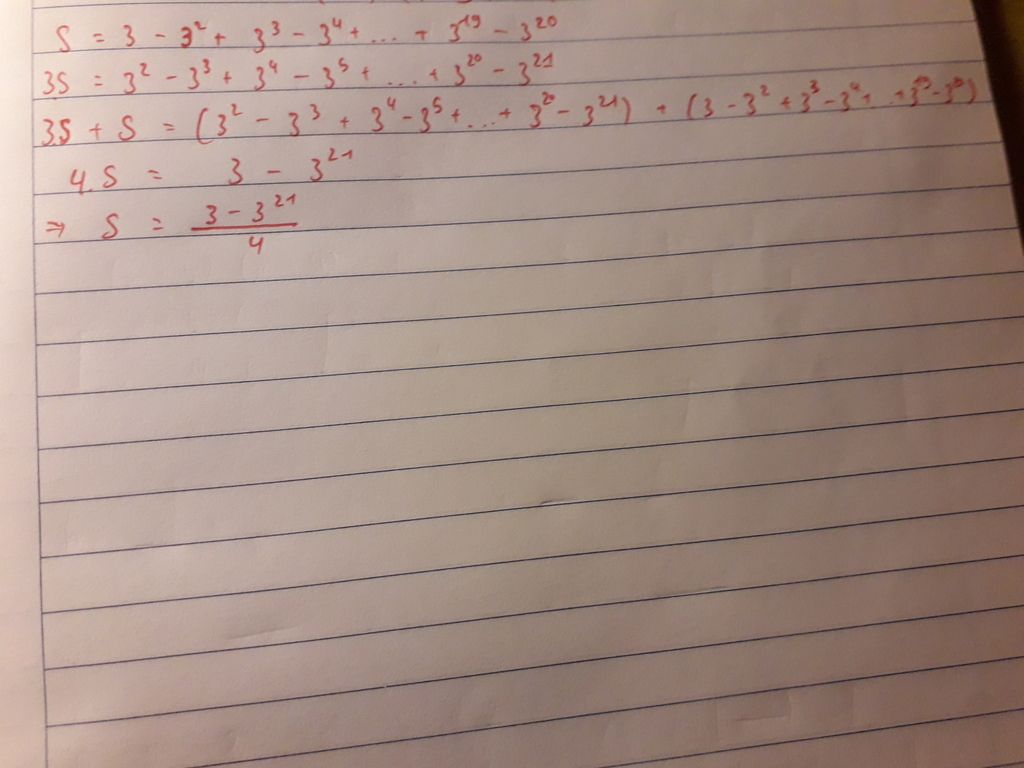 S = 3 - 3² + 3³ - 3⁴ + ... + 3¹⁹ - 3²⁰
3S = 3² - 3³ + 3⁴ - 3⁵ + ... + 3²⁰ - 3²¹
3S + S = (3² - 3³ + 3⁴ - 3⁵ + ... + 3²⁰ - 3²¹) + (3 - 3² + 3³ - 3⁴ + ... + 3¹⁹ - 3²⁰)
4.S = 3 - 3²¹
⇒ S = (3 - 3²¹)/4